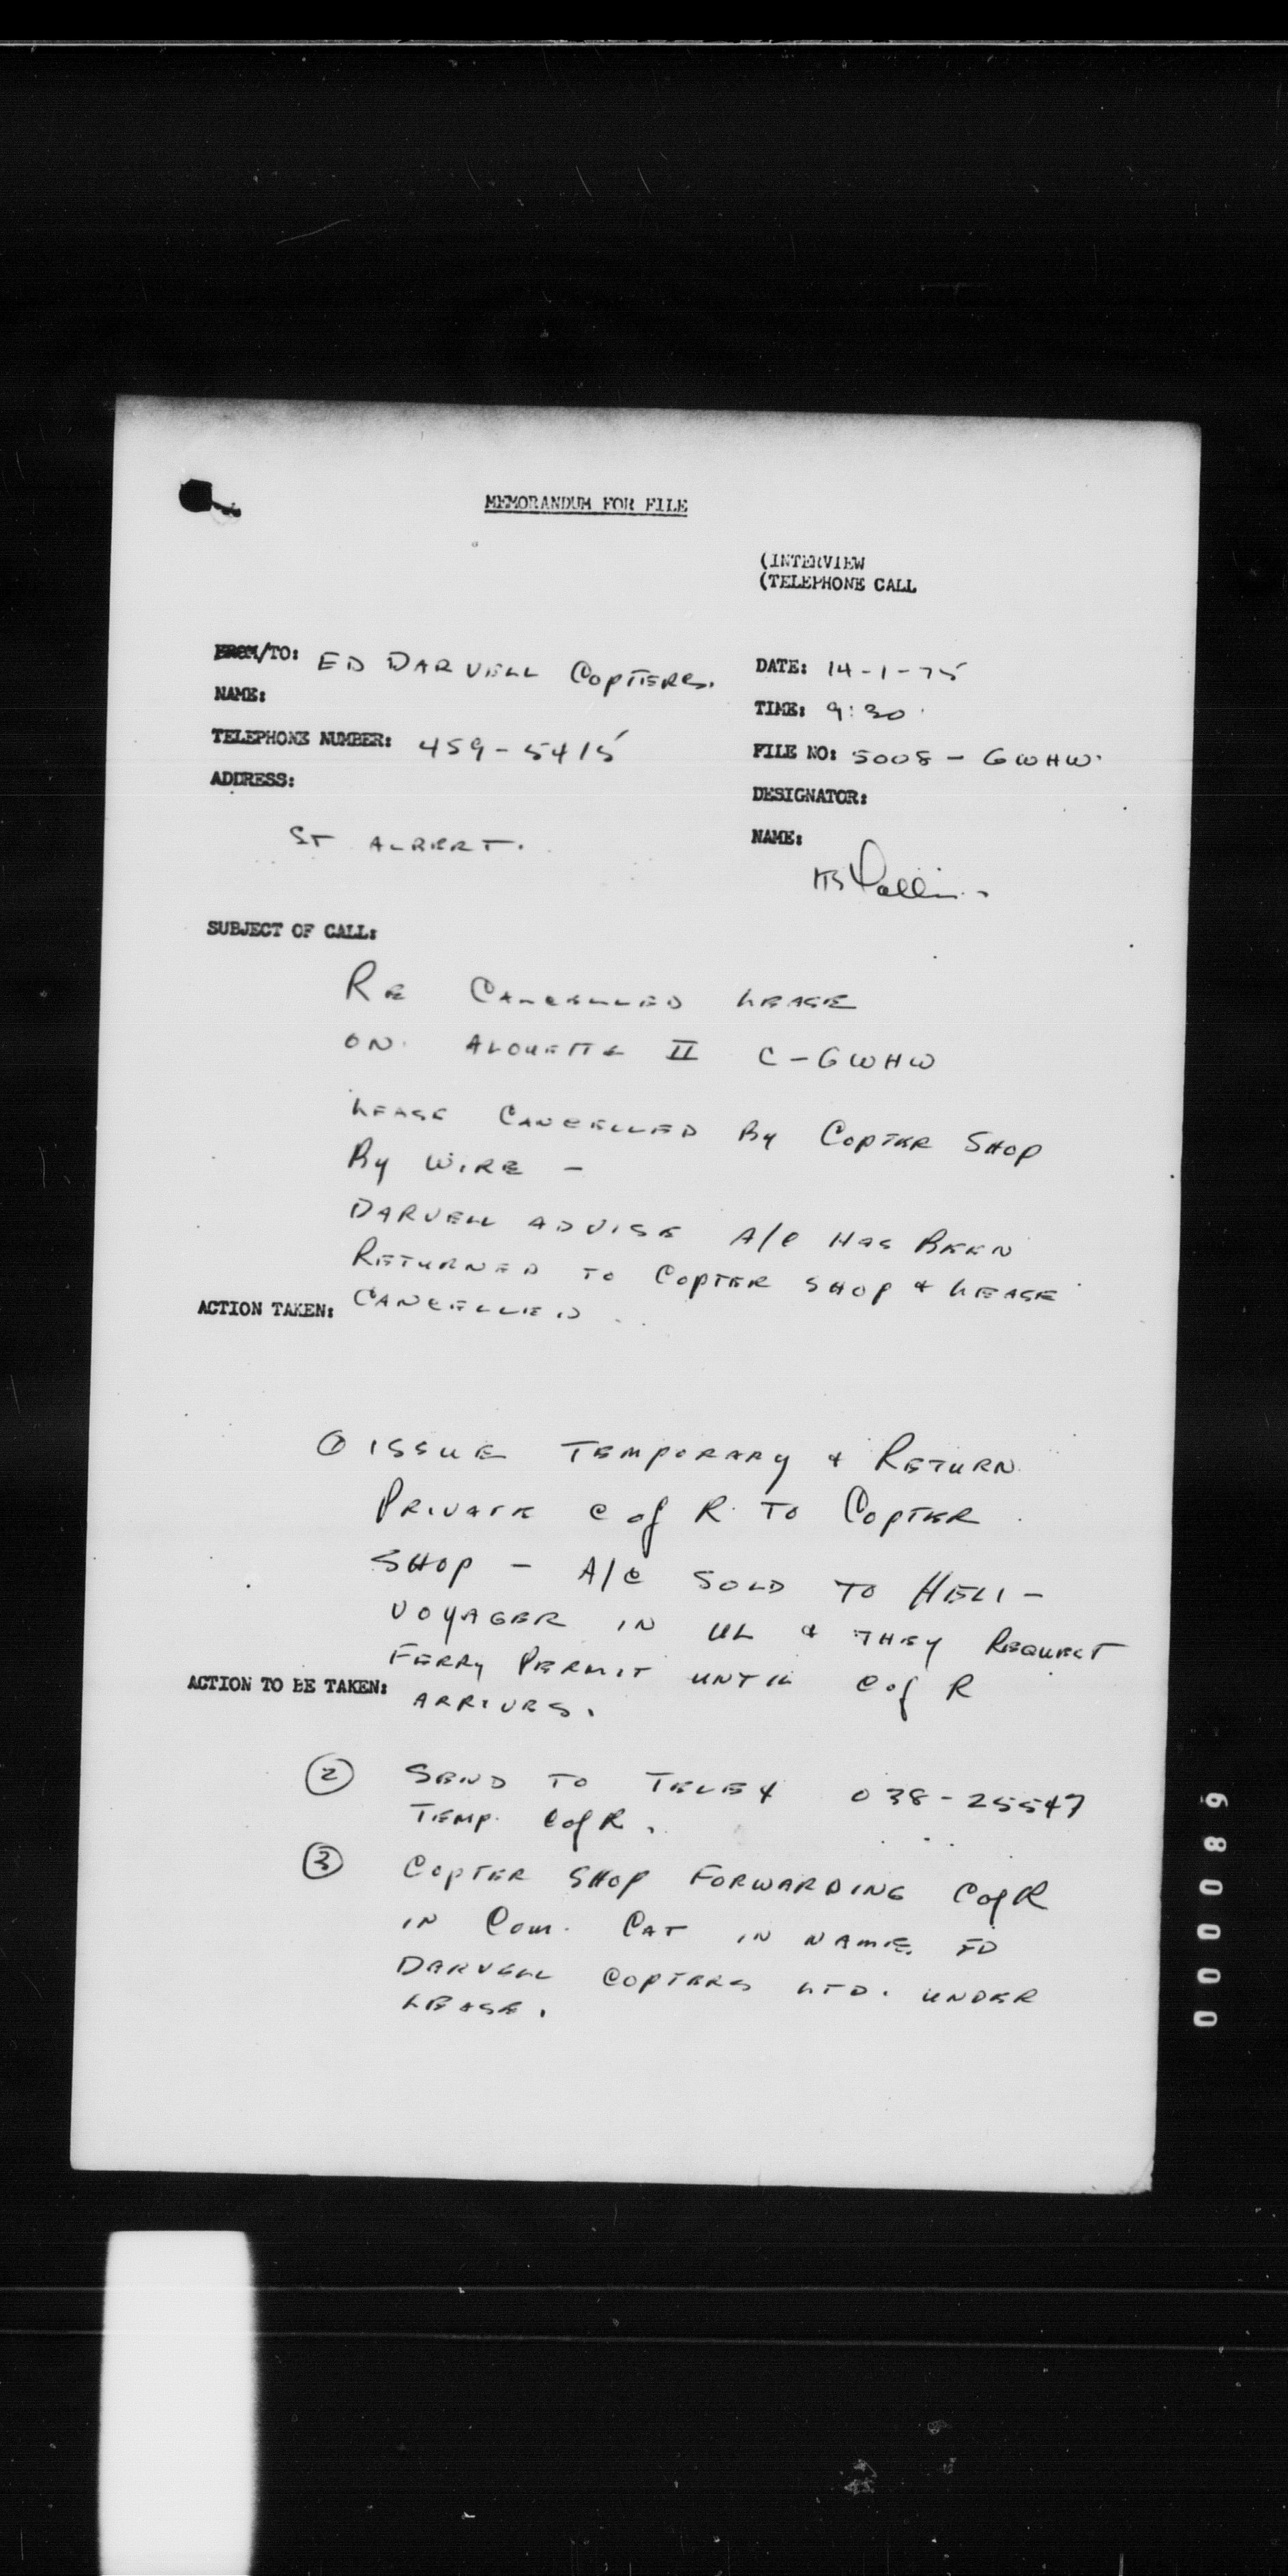 MEMORANDUM FOR FILE
(INTERVIEW
(TELEPHONE CALL
FROM/TO: ED DARVELL COPTERS.
NAME:
TELEPHONE NUMBER: 459-5415
ADDRESS:
ST ALBERT.
DATE: 14-1-75
TIME: 9:30
FILE NO: 5008 - GWHW.
DESIGNATOR:
NAME:
SUBJECT OF CALL:
RE CANCELLED LEASE
ON ALOUETTE II C-GWHW
LEASE CANCELLED BY COPTER SHOP
BY WIRE -
DARVELL ADVISE A/C HAS BEEN
RETURNED TO COPTER SHOP & LEASE
CANCELLED
ACTION TAKEN:
① ISSUE TEMPORARY & RETURN
PRIVATE C of R TO COPTER
SHOP - A/C SOLD TO HELI-
VOYAGER IN UL & THEY REQUEST
FERRY PERMIT UNTIL C of R
ARRIVES.
ACTION TO BE TAKEN:
② SEND TO TELEX 038-25547
TEMP. C of R.
③ COPTER SHOP FORWARDING C of R
IN COM. CAT IN NAME ED
DARVELL COPTERS LTD. UNDER
LEASE.
000089